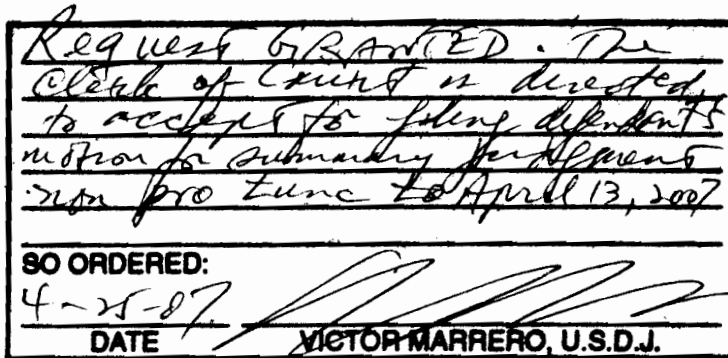 Request GRANTED. The
Clerk of Court is directed
to accept for filing defendants
motion for summary judgment
non pro tunc to April 13, 2007
SO ORDERED:
4-25-07
DATE VICTOR MARRERO, U.S.D.J.